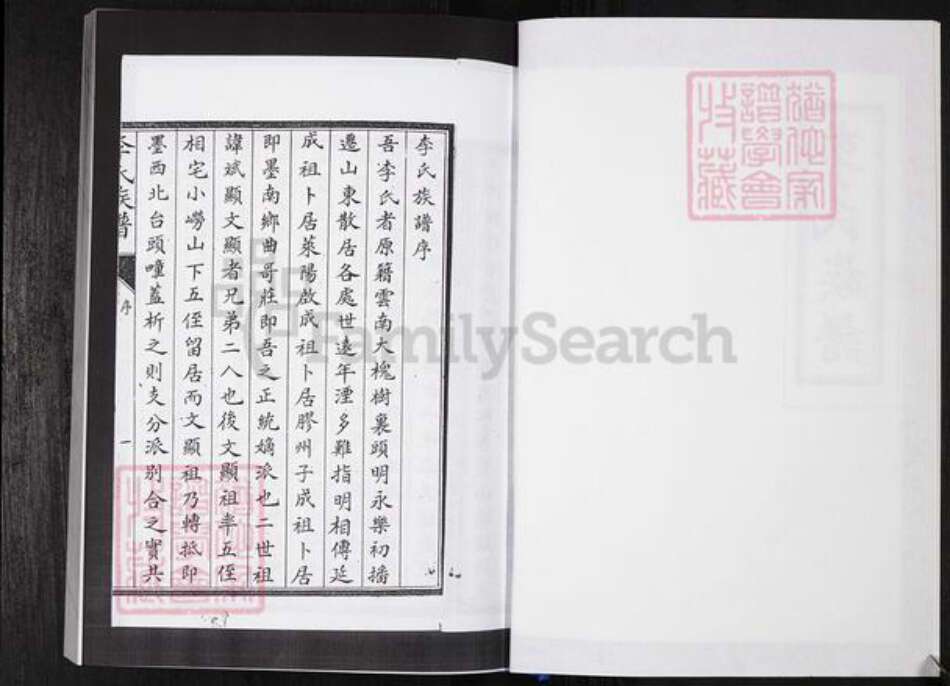 李氏族譜序
吾李氏者原籍雲南大槐樹裏頭明永樂初播
遷山東散居各處世遠年湮多難指明相傳延
成祖卜居萊陽啟成祖卜居膠州子成祖卜居
即墨南鄉曲哥莊即吾之正統嫡派也二世祖
諱斌顯文顯者兄弟二人也後文顯祖率五侄
相宅小嶗山下五侄留居而文顯祖乃轉抵即
墨西北台頭疃蓋析之則支分派別合之實共
李氏族譜
序
一
譜學會
收藏
FamilySearch